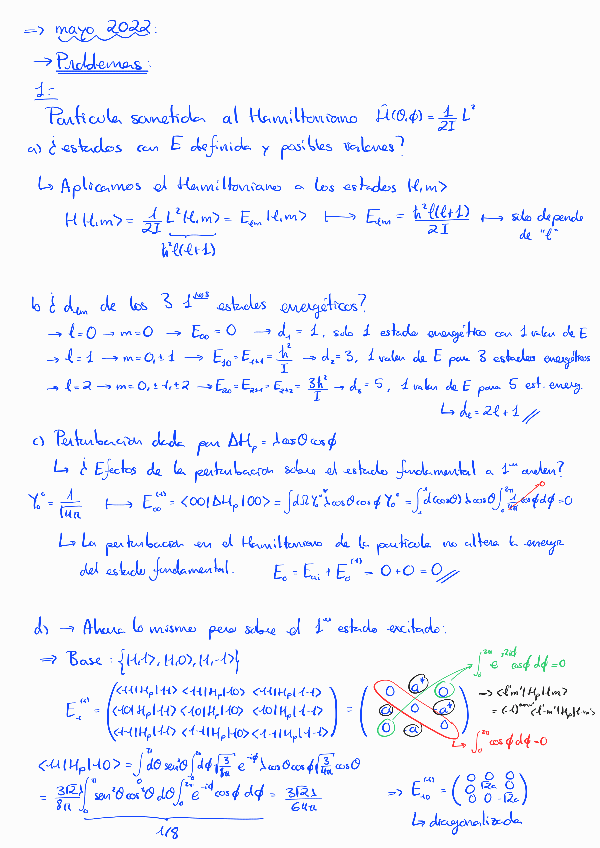 ⇒ mayo 2022:
→ Problemas:
1:
Partícula sometida al Hamiltoniano Ĥ(θ,φ) = 1/2I L²
a) ¿estados con E definida y posibles valores?
↳ Aplicamos el Hamiltoniano a los estados |l,m>
H|l,m> = 1/2I L²|l,m> = E_lm |l,m> ⟼ E_lm = ħ²l(l+1)/2I ⟼ solo depende de "l"
ħ²l(l+1)
b) ¿d_lm de los 3 1ᵉʳᵒˢ estados energéticos?
→ l=0 → m=0 → E₀₀ = 0 → d₁ = 1, solo 1 estado energético con 1 valor de E
→ l=1 → m=0,±1 → E₁₀ = E₁±₁ = ħ²/I → d₂ = 3, 1 valor de E para 3 estados energéticos
→ l=2 → m=0,±1,±2 → E₂₀ = E₂±₁ = E₂±₂ = 3ħ²/I → d₃ = 5, 1 valor de E para 5 est. energ.
↳ d_l = 2l+1 //
c) Perturbación dada por ΔH_p = λcosθcosφ
↳ ¿Efectos de la perturbación sobre el estado fundamental a 1ᵉʳ orden?
Y₀⁰ = 1/√4π ⟼ E₀₀⁽¹⁾ = <00|ΔH_p|00> = ∫dΩ Y₀⁰* λcosθcosφ Y₀⁰ = ∫₋₁¹ d(cosθ) λcosθ ∫₀²π 1/4π cosφdφ = 0
↳ La perturbación en el Hamiltoniano de la partícula no altera la energía
del estado fundamental. E₀ = E₀ᵢ + E₀⁽¹⁾ = 0+0 = 0 //
d) → Ahora lo mismo pero sobre el 1ᵉʳ estado excitado:
⇒ Base: {|1,1>, |1,0>, |1,-1>}
∫₀²π e⁻²ⁱφ cosφ dφ = 0
E₁⁽¹⁾ = (<11|H_p|11> <11|H_p|10> <11|H_p|1-1>
<10|H_p|11> <10|H_p|10> <10|H_p|1-1>
<1-1|H_p|11> <1-1|H_p|10> <1-1|H_p|1-1>) = (0 a* 0
a 0 a*
0 a 0)
→ <l'm'|H_p|lm>
∫₀²π cosφdφ = 0
<11|H_p|10> = ∫₀π dθ sen²θ ∫₀²π dφ √3/8π e⁻ⁱφ λcosθcosφ √3/4π cosθ
= 3√2λ/8π ∫₀π sen²θ cos²θ dθ ∫₀²π e⁻ⁱφ cosφ dφ = 3√2λ/64π
π/8
⇒ E₁₀⁽¹⁾ = (0 0 0
0 √2a 0
0 0 -√2a)
↳ diagonalizada